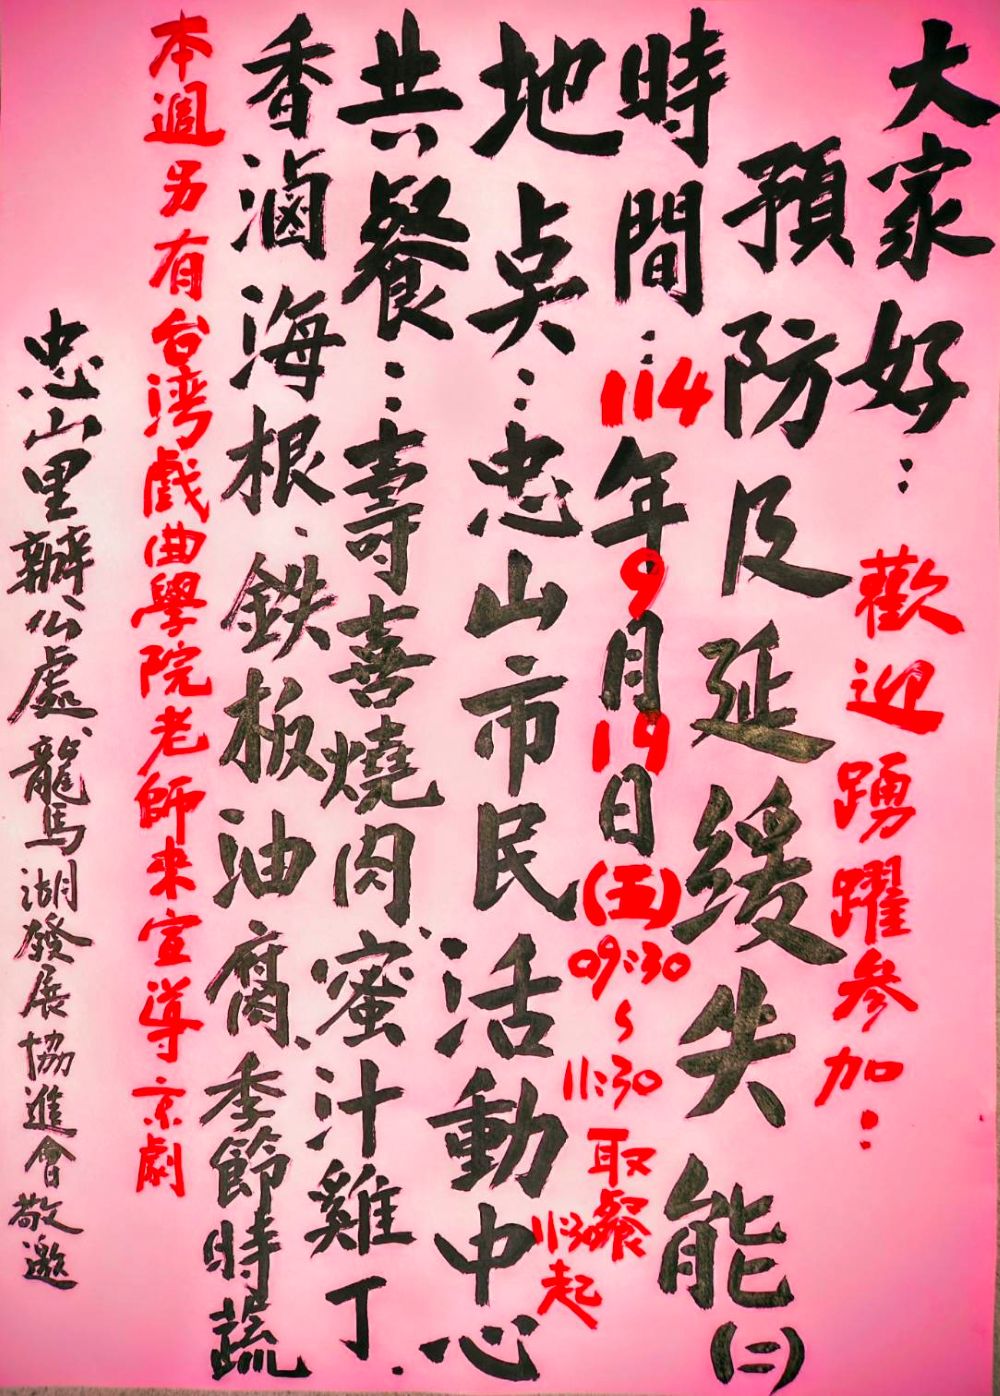 大家好：歡迎踴躍參加：
預防及延緩失能(二)
時間：114年9月19日(五)09:30~11:30取餐11:30起
地奌：忠山市民活動中心
共餐：壽喜燒肉、蜜汁雞丁.
香滷海根.鉄板油腐、季節時蔬
本週另有台灣戲曲學院老師來宣導京劇
忠山里辦公處、龍馬湖發展協進會敬邀